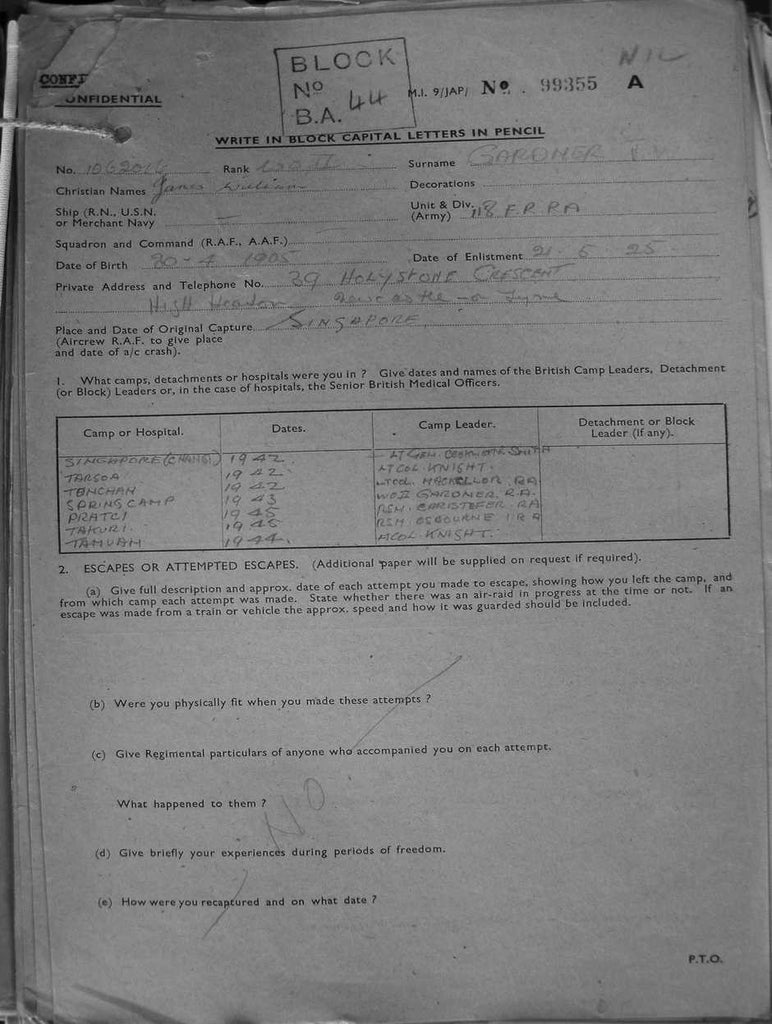 CONFIDENTIAL
BLOCK
No
B.A. 44
NIL
M.I. 9/JAP/ No. 99355 A
WRITE IN BLOCK CAPITAL LETTERS IN PENCIL
No. Rank WO II Surname GARDNER
Christian Names James William Decorations
Ship (R.N., U.S.N. or Merchant Navy –
Unit & Div. (Army) 118 F.R RA
Squadron and Command (R.A.F., A.A.F.)
Date of Birth 30-4 1905 Date of Enlistment 21. 5 25
Private Address and Telephone No. 39 HOLYSTONE CRESCENT
HIGH Heaton Newcastle-o Tyne
Place and Date of Original Capture SINGAPORE
(Aircrew R.A.F. to give place
and date of a/c crash).
1. What camps, detachments or hospitals were you in ? Give dates and names of the British Camp Leaders, Detachment
(or Block) Leaders or, in the case of hospitals, the Senior British Medical Officers.
Camp or Hospital. Dates. Camp Leader. Detachment or Block Leader (if any).
SINGAPORE (CHANGI) 1942 LT GEN. SMITH
TARSOA 1942 LT COL KNIGHT.
TONCHAN 1942 LTCOL. MACKELLOR. RA.
SPRING CAMP 1943 WOII GARDNER. R.A.
PRATCI 1945 RSM. RA
TAKURI. 1945 RSM OSBOURNE. RA
TAMUAN 1944. LTCOL. KNIGHT.
2. ESCAPES OR ATTEMPTED ESCAPES. (Additional paper will be supplied on request if required).
(a) Give full description and approx. date of each attempt you made to escape, showing how you left the camp, and
from which camp each attempt was made. State whether there was an air-raid in progress at the time or not. If an
escape was made from a train or vehicle the approx. speed and how it was guarded should be included.
(b) Were you physically fit when you made these attempts ?
(c) Give Regimental particulars of anyone who accompanied you on each attempt.
What happened to them ?
NO
(d) Give briefly your experiences during periods of freedom.
(e) How were you recaptured and on what date ?
P.T.O.